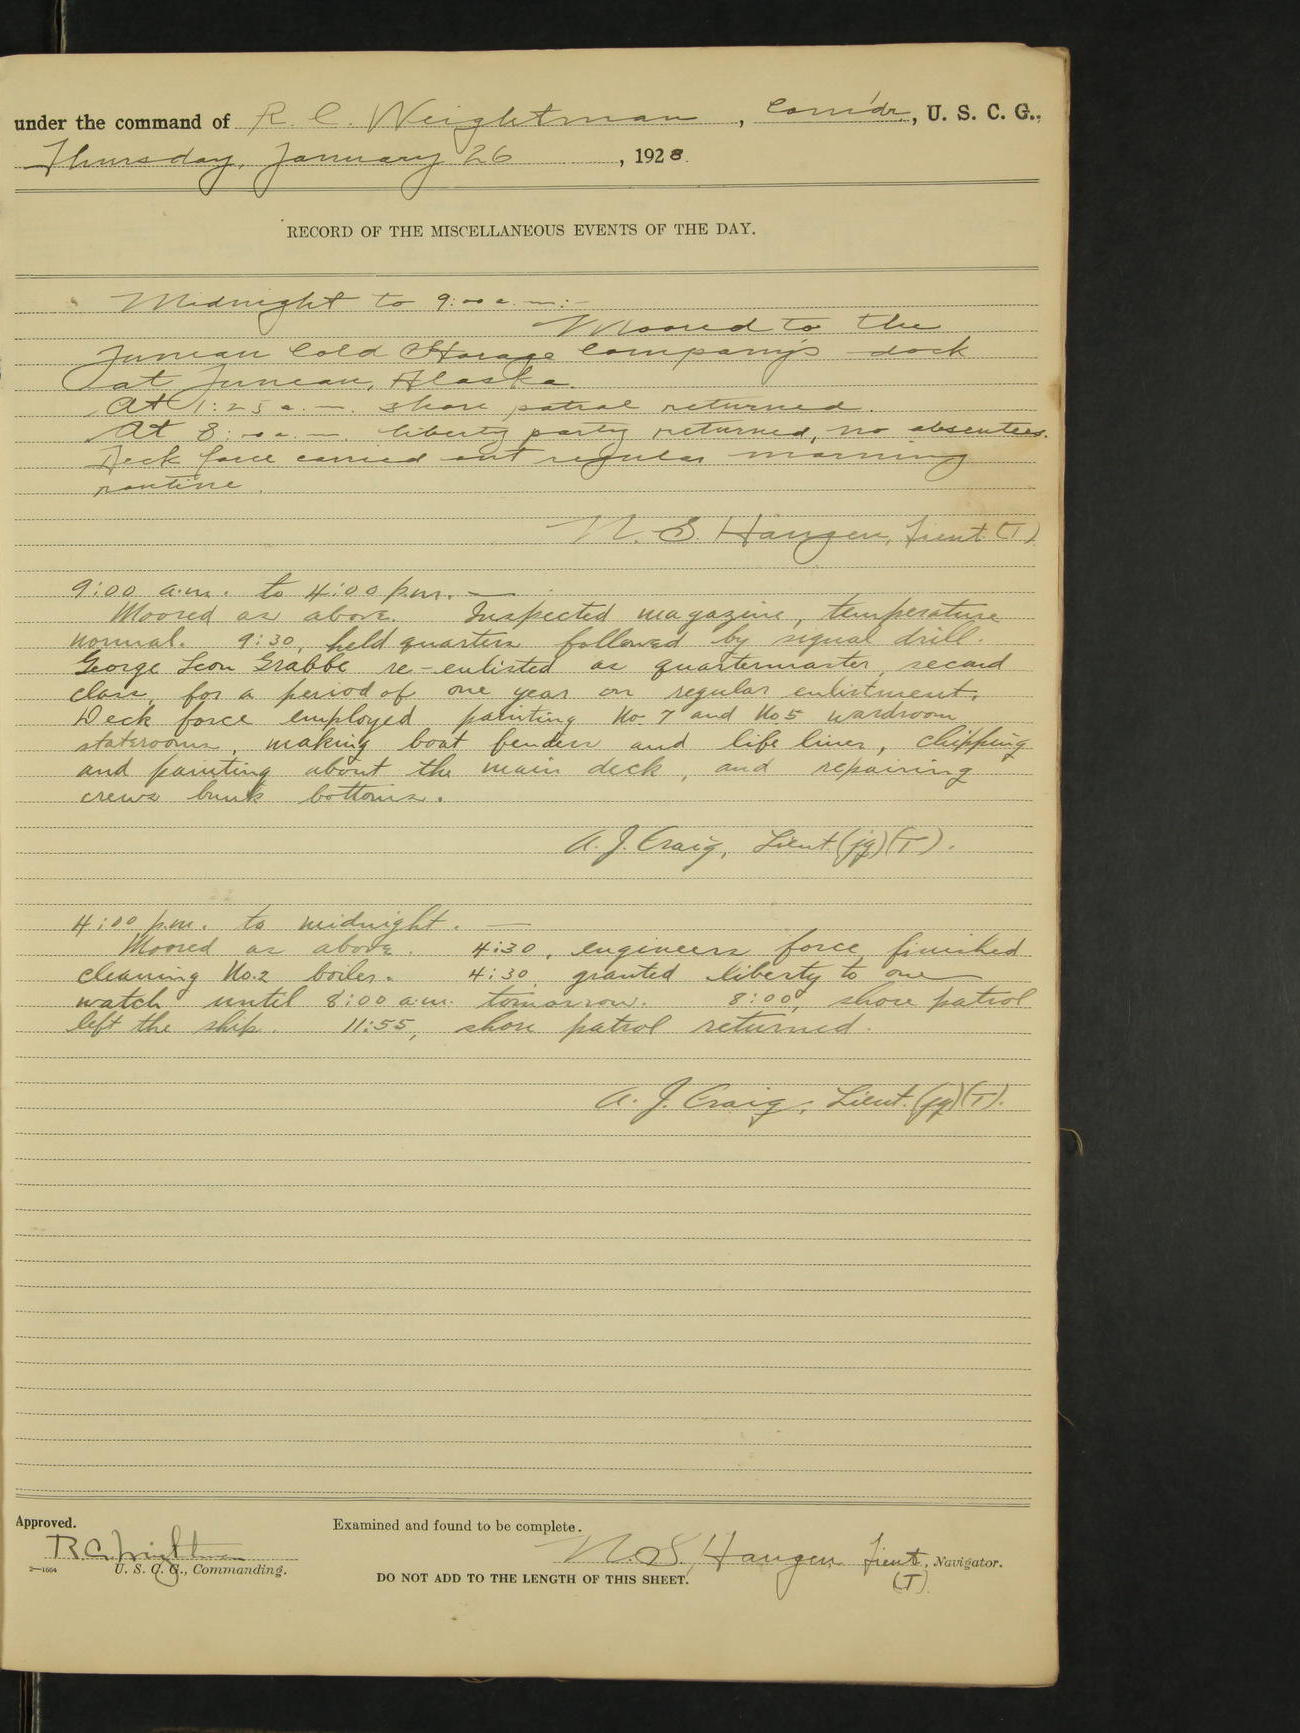 under the command of R. C. Weightman, Com'dr., U. S. C. G.,
Thursday, January 26, 1928.
RECORD OF THE MISCELLANEOUS EVENTS OF THE DAY.
Midnight to 9:00 a.m.:-
Moored to the
Juneau Cold Storage Company's dock
at Juneau, Alaska.
At 1:25 a.m. shore patrol returned.
At 8:00 a.m. liberty party returned, no absentees.
Deck force carried out regular morning
routine.
N. S. Haugen, Lieut (T)
9:00 a.m. to 4:00 p.m. —
Moored as above. Inspected magazine, temperature
normal. 9:30, held quarters followed by signal drill.
George Leon Grabbe re-enlisted as quartermaster, second
class, for a period of one year on regular enlistment.
Deck force employed painting No. 7 and No 5 wardroom
staterooms, making boat fenders and life lines, chipping
and painting about the main deck, and repairing
crews bunk bottoms.
A. J. Craig, Lieut. (jg) (T).
4:00 p.m. to midnight. —
Moored as above. 4:30, engineers force finished
cleaning No. 2 boiler. 4:30 granted liberty to one
watch until 8:00 a.m. tomorrow. 8:00, shore patrol
left the ship. 11:55, shore patrol returned.
A. J. Craig, Lieut. (jg) (T).
Approved.
Examined and found to be complete.
R. C. Weightman
N. S. Haugen Lieut, Navigator.
2—1664
U. S. C. G., Commanding.
(T)
DO NOT ADD TO THE LENGTH OF THIS SHEET.